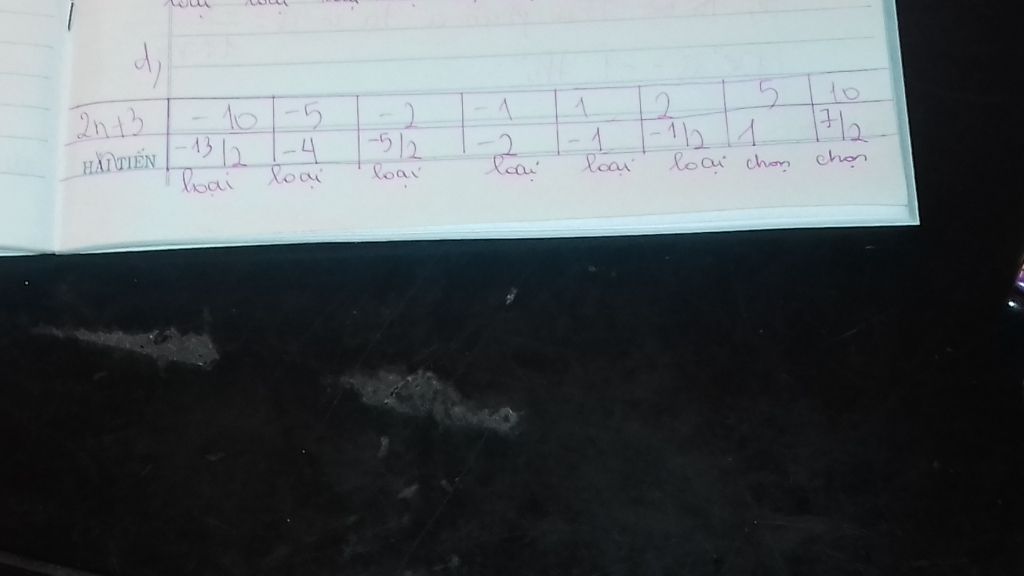 loại loại
d,
2n+3 -10 -5 -2 -1 1 2 5 10
HẢI TIẾN -13/2 -4 -5/2 -2 -1 -1/2 1 7/2
loại loại loại loại loại loại chọn chọn